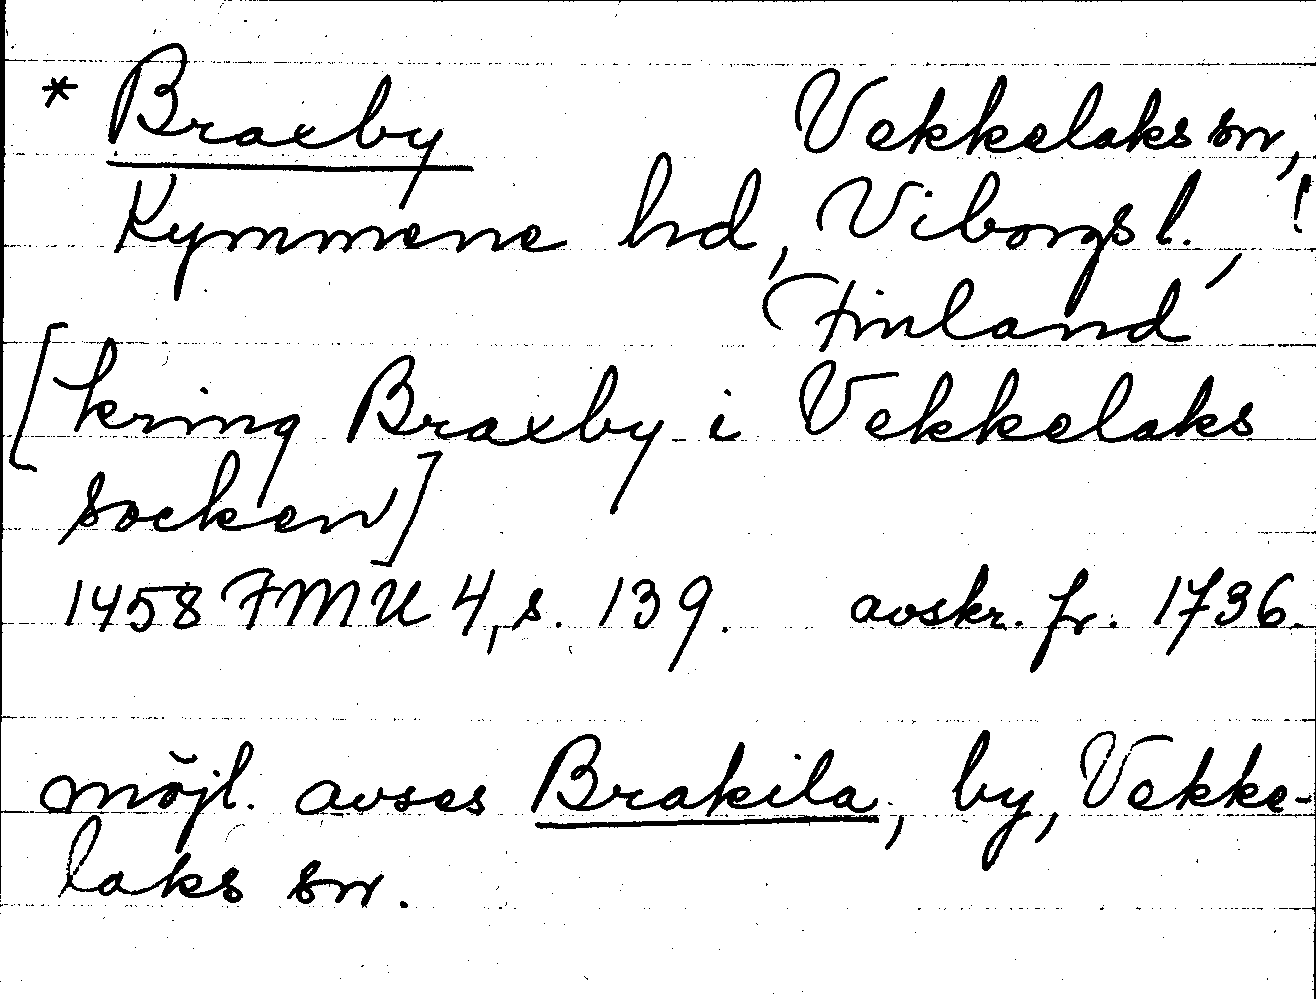 * Braxby Vekkelaks sn,
Kymmene hd, Viborgs l., !
Finland
[kring Braxby i Vekkelaks
socken]
1458 FMU 4, s. 139. avskr. fr. 1736.
möjl. avses Brakila, by, Vekke-
laks sn.